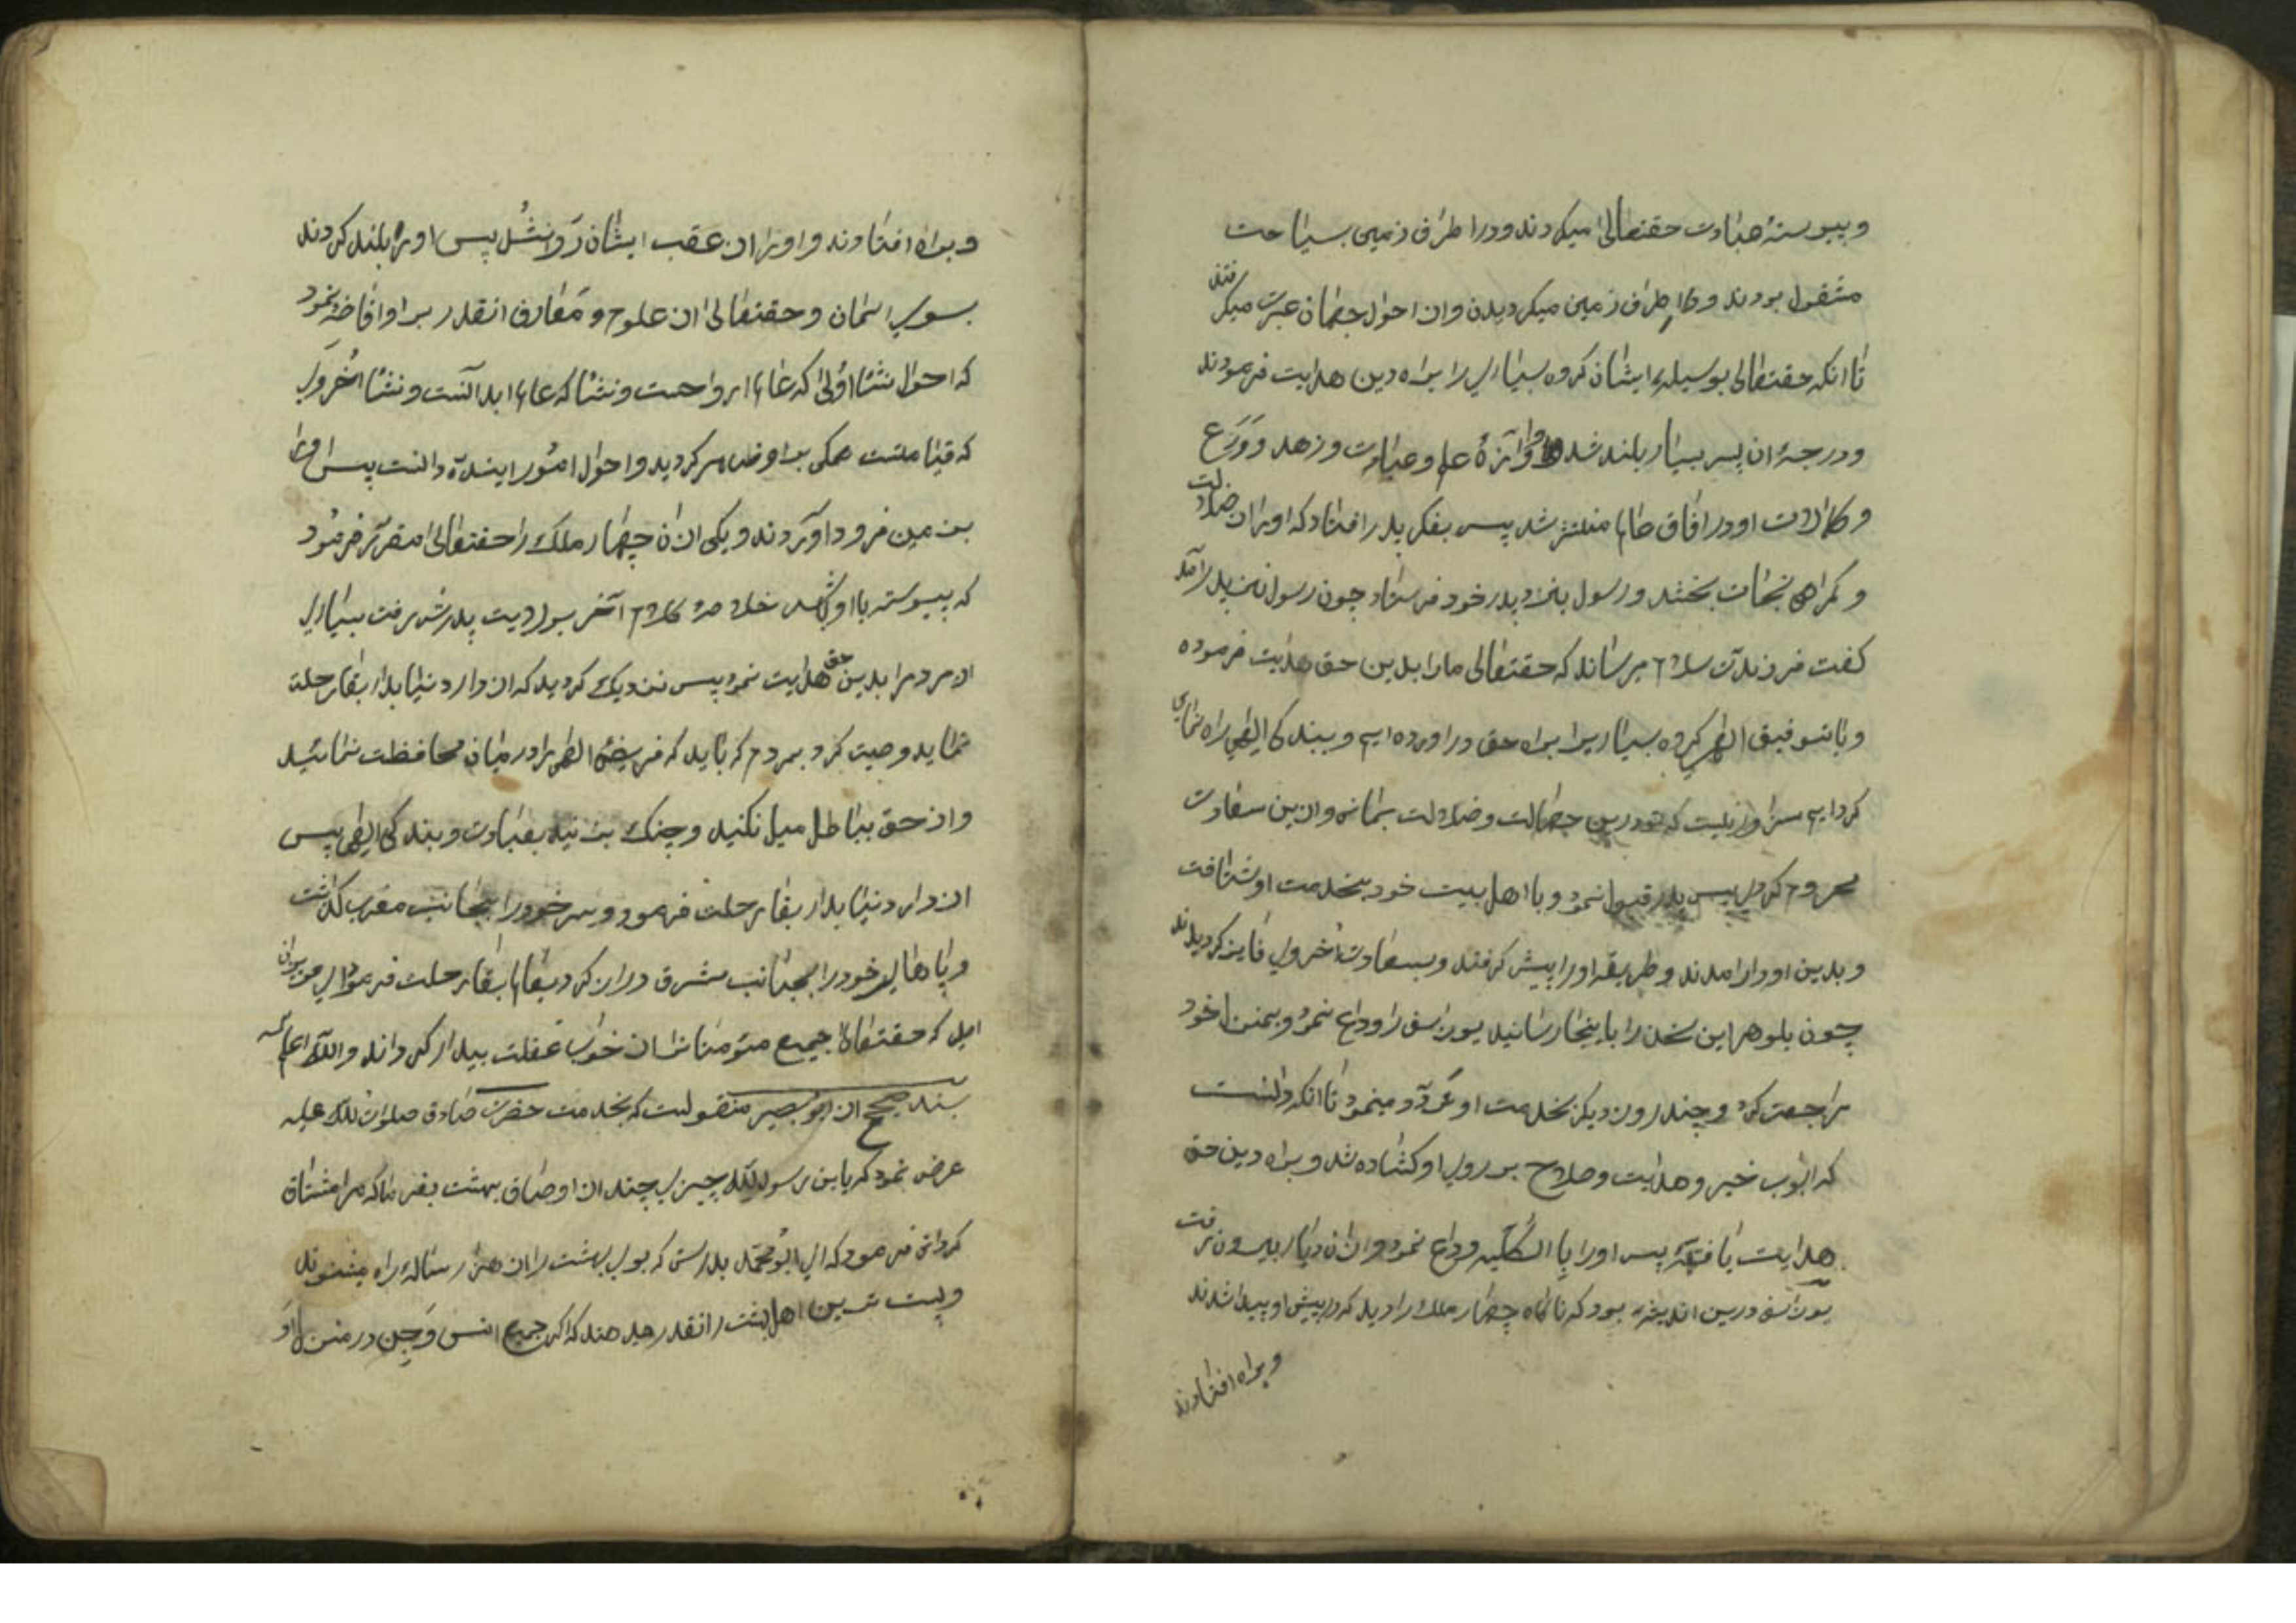 و پیوسته عبادت حقتعالی میکردند و در اطراف زمین بسیاحت
مشغول بودند و اطراف زمین میکردیدن و از احوال جهان عبرت میکرفتند
تا انکه حقتعالی بوسیله ایشان کروه بسیاری را براه دین هدایت فرمودند
و درجهٔ ان پسر بسیار بلند شد و آوازهٔ علم و عبادت و زهد و وَرَع
و کمالات او در افاق عالم منتشر شد پس بفکر پدر افتاد که او را از ضلالت
و کمراهی نجات بخشد و رسول بنزد پدر خود فرستاد چون رسول نزد پدر آمد
کفت فرزندت سلام میرساند که حقتعالی ما را بدین حق هدایت فرموده
و با توفیق الهی کروه بسیاریرا براه حق در اورده ایم و ببندکی الهی راه نمای
کرد ایم سزاوار نیست که تو درین جهالت و ضلالت بمانی و ازین سعادت
محروم کردی پس پدر قبول نمود و با اهل بیت خود بخدمت او شتافت
و بدین او در امدند و طریقه او را پیش کرفتند و بسعادت اُخروی فایز کردیدند
چون بلوهر این سخن را باینجا رسانید یوزاسف را وداع نمود و بمنزل خود
مراجعت کرد و چند روز دیکر بخدمت او تردّد مینمود تا انکه دانست
که ابواب خیر و هدایت و صلاح بر روی او کشاده شد و براه دین حق
هدایت یافته پس او را بالکلیه وداع نمود و از ان دیار بیرون رفت
یوزاسف درین اندیشه بود که ناکاه چهار ملک را دید که در پیش او پیدا شدند
و براه افتادند
و براه افتادند و او نیز از عقب ایشان رَوٰن شُد پس او را بلند کردند
بسوی اسمان و حقتعالی از علوم و معارف انقدر بر او افاضه نمود
که احوال نشا اولی که عالم ارواحست و نشا که عالم ابدانست و نشا اُخروی
که قیامتست همکی بر او ظاهر کردید و احوال امور اینده دانست پس او را
بزمین فرود آوردند و یکی از ان چهار ملک را حقتعالی مقرّر فرمود
که پیوسته با او باشد خلاصهٔ کلام آخر بولایت پدرش رفت بسیاری
از مردم را بدین حق هدایت نمود پس نزدیک کردید که از دار دنیا بدار بقا رحلت
نماید وصیت کرد بمردم که باید که فریضهٔ الهی را در میان محافظت نمائید
و از حق بباطل میل نکنید و چنک بزنید بعبادت و بندکی الهی پس
از دار دنیا بدار بقا رحلت فرمود و سر خود را بجانب مغرب کذاشت
و پاهای خود را بجانب مشرق دراز کرد بعالم بقا رحلت فرمود ای عزیزان
امید که حقتعالا جمیع مؤمنانرا از خواب غفلت بیدار کرداند واللّه اعلم
بسند صحیح از ابو بصیر منقولست که بخدمت حضرت صادق صلوات اللّه علیه
عرض نمود که یابن رسول اللّه چیزی چند از اوصاف بهشت بفرما که مرا مشتاق
کردانی فرمود که ای ابو محمّد بدرستی که بوی بهشت را از هزار ساله راه میشنوند
و پست ترین اهل بهشت را انقدر میدهند که اکر جمیع انس و جِن در منزل او